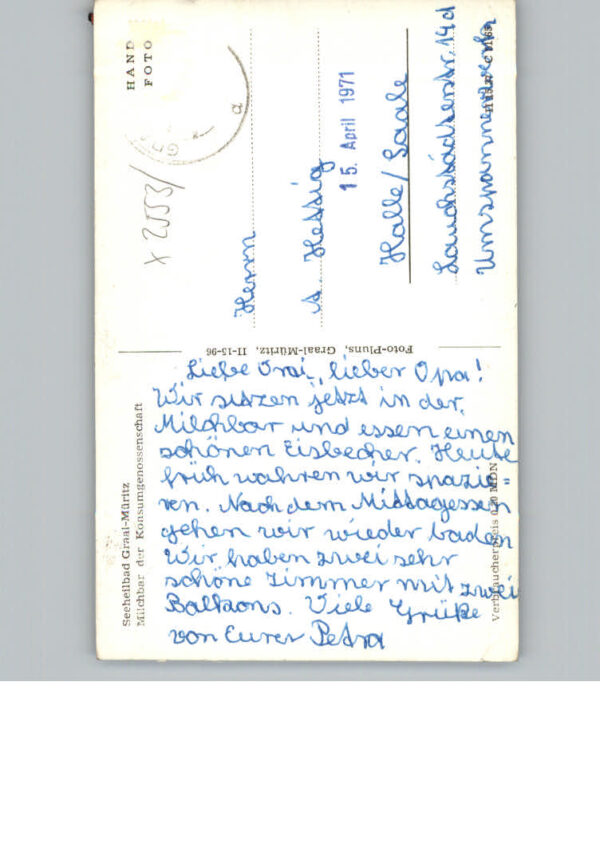 Liebe Omi, lieber Opa!
Wir sitzen jetzt in der
Milchbar und essen einen
schönen Eisbecher. Heute
früh wahren wir spazie=
ren. Nach dem Mittagessen
gehen wir wieder baden
Wir haben zwei sehr
schöne Zimmer mit zwei
Balkons. Viele Grüße
von Eurer Petra
Seeheilbad Graal-Müritz
Milchbar der Konsumgenossenschaft
Verbraucherpreis MDN
Foto-Pluns, Graal-Müritz, II-15-96
HAND
FOTO
a
x 2553/
15. April 1971
Herrn
A. Hettig
Halle/Saale
Lauchstädterstr. 14d
Umspannenwerk